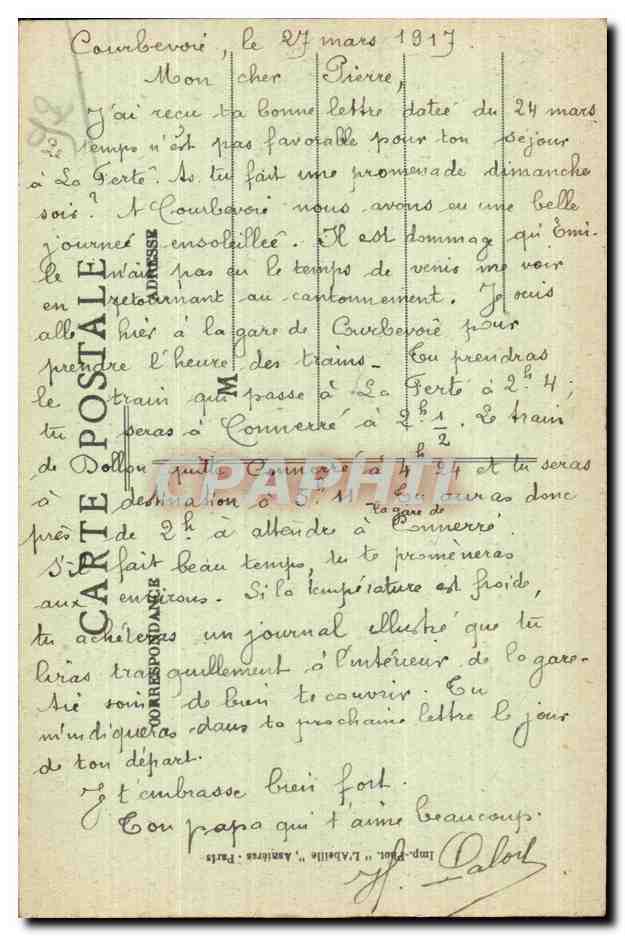 Courbevoie, le 27 mars 1917.
Mon cher Pierre,
J'ai reçu ta bonne lettre datée du 24 mars.
Le temps n'est pas favorable pour ton séjour
à La Ferté. As-tu fait une promenade dimanche
soir? A Courbevoie nous avons eu une belle
journée ensoleillée. Il est dommage qu'Emi-
le n'ait pas eu le temps de venir me voir
en retournant au cantonnement. Je suis
allé hier à la gare de Courbevoie pour
prendre l'heure des trains_ Tu prendras
le train qui passe à La Ferté à 2h 4;
tu seras à Connerré à 2h 1/2. Le train
de Dollon quitte Connerré à 4h 24 et tu seras
à destination à 5h 11_ Tu auras donc
près de 2h à attendre à la gare de Connerré.
S'il fait beau temps, tu te promèneras
aux environs. Si la température est froide,
tu achèteras un journal illustré que tu
liras tranquillement à l'intérieur de la gare_
Aie soin de bien te couvrir. Tu
m'indiqueras dans ta prochaine lettre le jour
de ton départ.
Je t'embrasse bien fort.
Ton papa qui t'aime beaucoup.
CARTE POSTALE
CORRESPONDANCE
ADRESSE
M
Imp.-Phot. "L'Abeille", Asnières-Paris
CPAPHIL